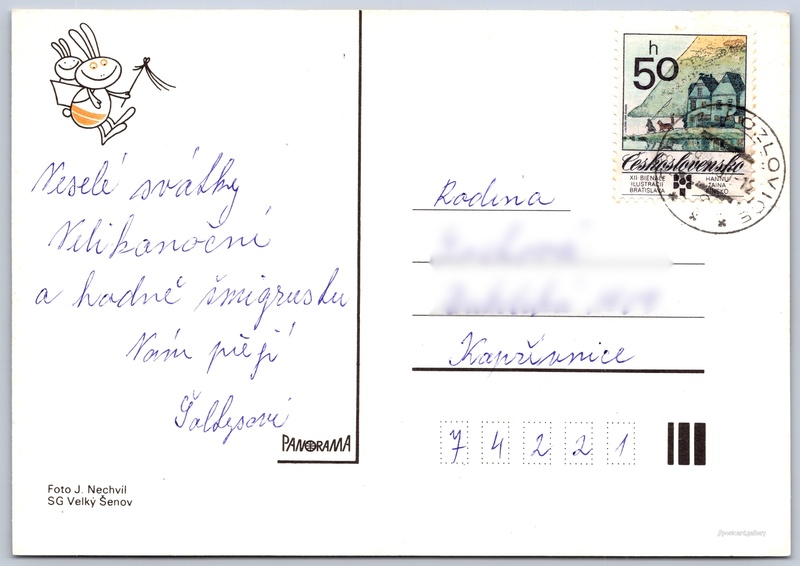 Veselé svátky
Velikanoční
a hodně šmigrustu
Vám přejí
Šaltysovi
PANORAMA
Foto J. Nechvíl
SG Velký Šenov
h
50
Československo
XII BIENÁLE
ILUSTRÁCIÍ
BRATISLAVA
HANNU
TAINA
FÍNSKO
KOZLOVICE
Rodina
Kopřivnice
7 4 2 2 1
postcard.gallery